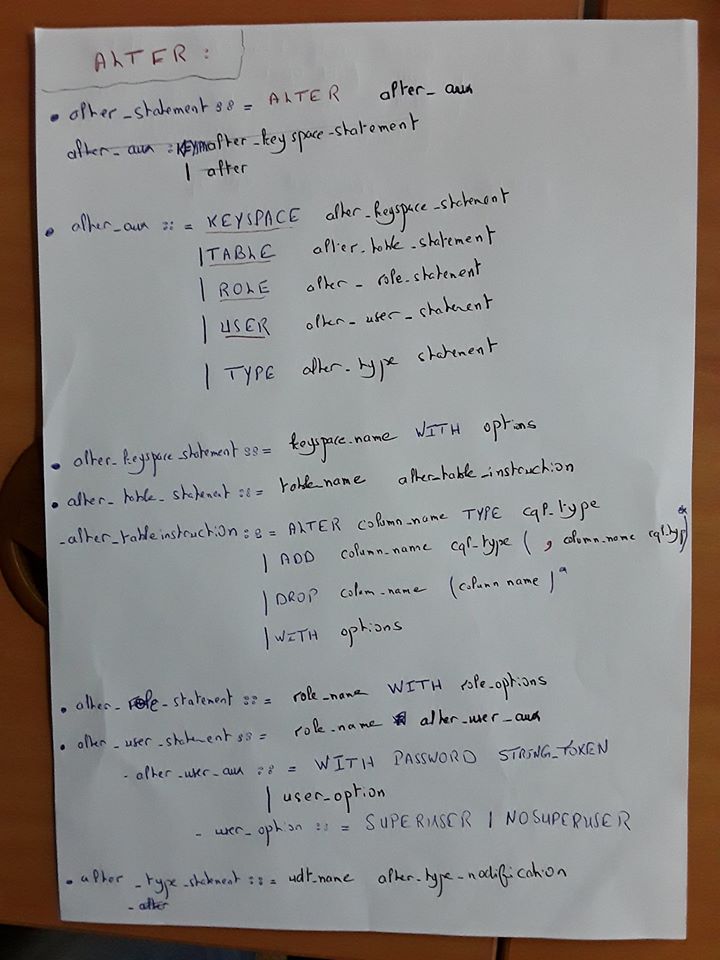 ALTER :
• alter_statement ::= ALTER alter_aux
alter_aux : alter_keyspace-statement
| alter
• alter_aux ::= KEYSPACE alter_keyspace_statement
| TABLE alter_table_statement
| ROLE alter_role_statement
| USER alter_user_statement
| TYPE alter_type statement
• alter_keyspace_statement ::= keyspace_name WITH options
• alter_table_statement ::= table_name alter_table_instruction
-alter_table instruction ::= ALTER column_name TYPE cql_type
| ADD column_name cql_type ( , column_name cql_typ)*
| DROP colum_name (column name)*
| WITH options
• alter_role_statement ::= role_name WITH role_options
• alter_user_statement ::= role_name alter_user_aux
- alter_user_aux ::= WITH PASSWORD STRING_TOKEN
| user_option
- user_option ::= SUPERUSER | NOSUPERUSER
• alter_type_statement ::= udt_name alter_type_modification
- alter